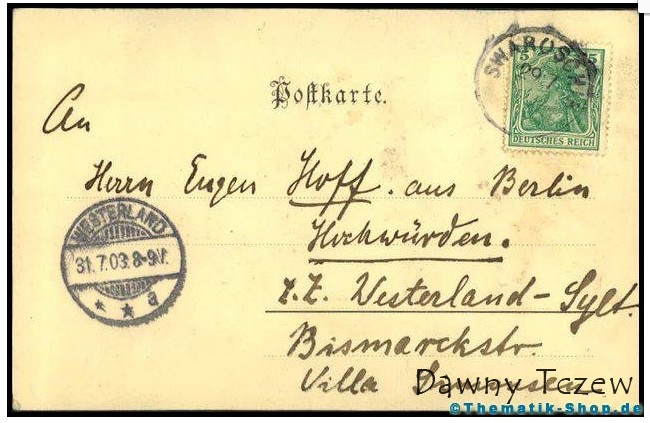 SWAROSCHIN
5 5
DEUTSCHES REICH
Postkarte.
An
Herrn Eugen Hoff. aus Berlin
Hochwürden.
WESTERLAND
31.7.03. 8-9V.
* * a
z. Z. Westerland-Sylt.
Bismarckstr.
Villa
Dawny Tczew
©Thematik-Shop.de